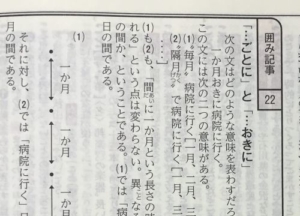 囲み記事 22
「…ごとに」と「…おきに」
次の文はどのような意味を表わすだろ
一か月おきに病院に行く。
この文には次の二つの意味がある。
(1)。毎月。病院に行く[一月、二月、三
(2)。隔月で病院に行く[一月、三月、
……
(1)も(2)も、「間に一か月という長さの
れる」という点は変わらない。異なる
の間か、ということである。(1)では「病
日の間である。
(1)
一か月 一か月 一か
それに対し、(2)では「病院に行く」月
月の間である。